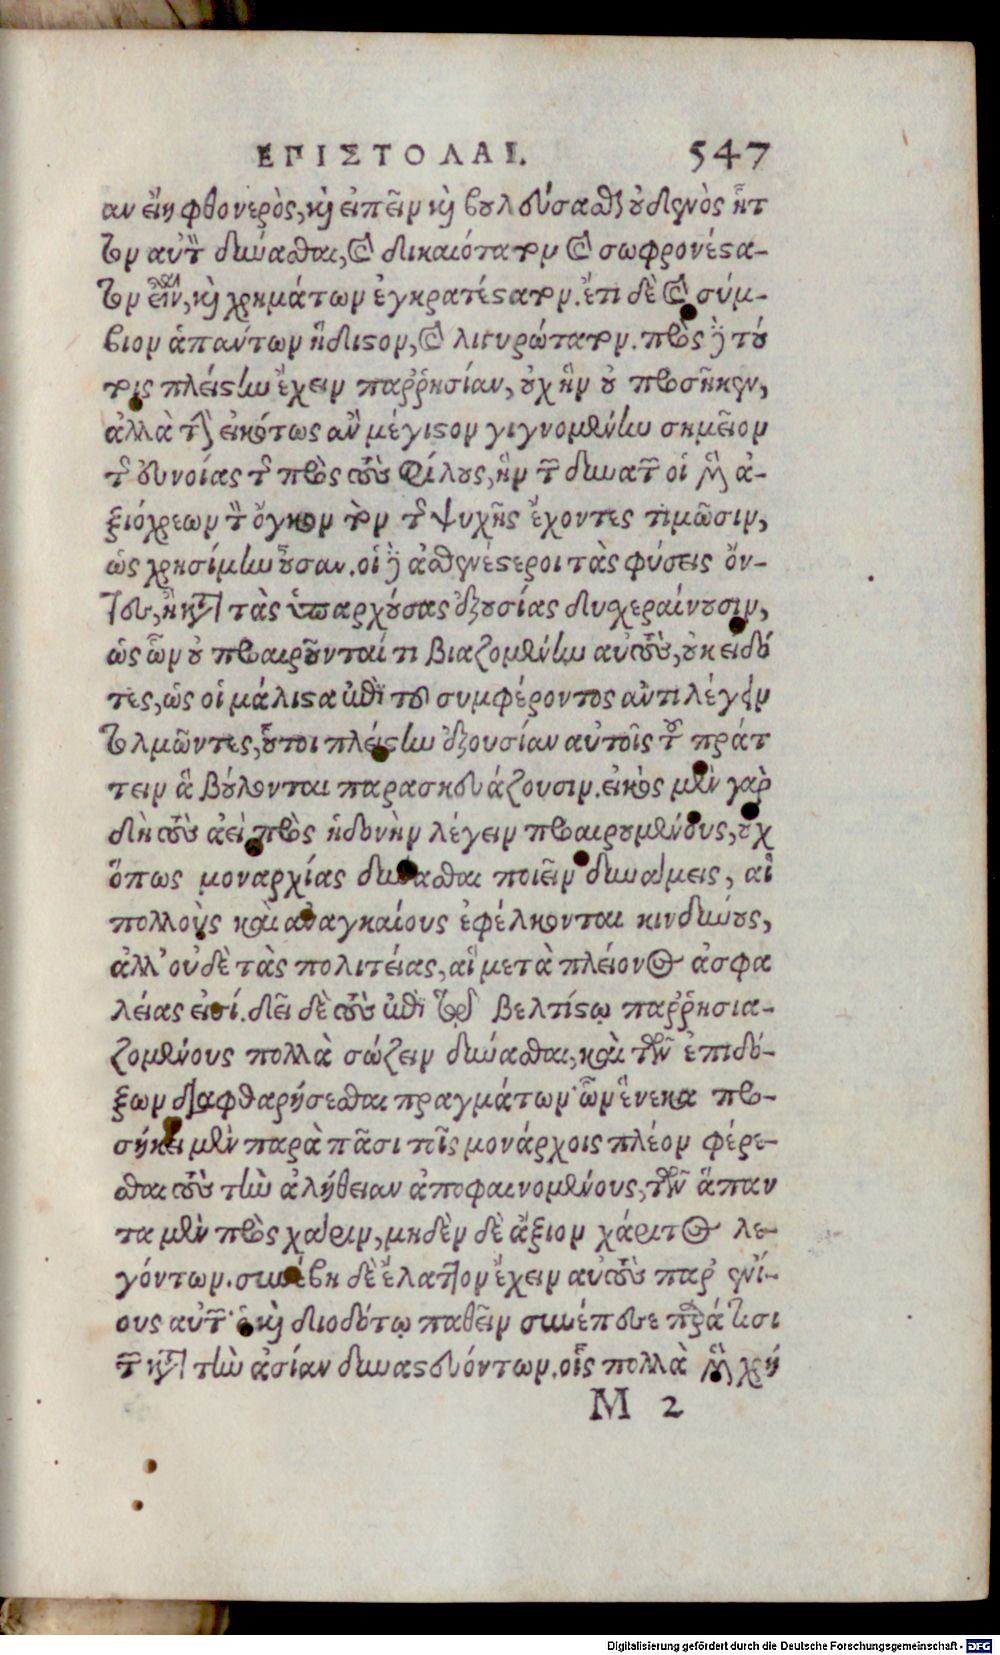 ΕΠΙΣΤΟΛΑΙ. 547
αν εἴη φθονερὸς, καὶ εἰπεῖν καὶ βουλεύσασθαι οὐδενὸς ἧτ
τον αὐτὸν δύνασθαι, καὶ δικαιότατον καὶ σωφρονέστα-
τον εἶναι, καὶ χρημάτων ἐγκρατέστατον. ἔτι δὲ καὶ σύμ-
βιον ἁπάντων ἥδιστον, καὶ λιγυρώτατον. πρὸς δὲ τού
τοις πλείστην ἔχειν παῤῥησίαν, οὐχ ἣν οὐ προσῆκεν,
ἀλλὰ τὴν εἰκότως ἂν μέγιστον γιγνομένην σημεῖον
τῆς εὐνοίας τῆς πρὸς τοὺς φίλους, ἣν τῶν δυνατῶν οἱ μὲν ἀ-
ξιόχρεων τὸν ὄγκον τὸν τῆς ψυχῆς ἔχοντες τιμῶσιν,
ὡς χρησίμην οὖσαν. οἱ δὲ ἀσθενέστεροι τὰς φύσεις ὄν-
τες, ἢ κατὰ τὰς ὑπαρχούσας ἐξουσίας δυσχεραίνουσιν,
ὡς ὧν οὐ προαιροῦνταί τι βιαζομένην αὐτοὺς, οὐκ εἰδό
τες, ὡς οἱ μάλιστα ἐπὶ τοῦ συμφέροντος ἀντιλέγειν
τολμῶντες, οὗτοι πλείστην ἐξουσίαν αὐτοῖς τοῦ πράτ
τειν ἃ βούλονται παρασκευάζουσιν. εἰκὸς μὲν γὰρ
διὰ τοὺς ἀεὶ πρὸς ἡδονὴν λέγειν προαιρουμένους, οὐχ
ὅπως μοναρχίας δύνασθαι ποιεῖν δυνάμεις, αἳ
πολλοὺς καὶ ἀναγκαίους ἐφέλκονται κινδύνους,
ἀλλ' οὐδὲ τὰς πολιτείας, αἳ μετὰ πλείονος ἀσφα
λείας εἰσί. δεῖ δὲ τοὺς ἐπὶ τῷ βελτίστῳ παῤῥησια-
ζομένους πολλὰ σώζειν δύνασθαι, καὶ τῶν ἐπιδό-
ξων διαφθαρήσεσθαι πραγμάτων· ὧν ἕνεκα προ-
σήκει μὲν παρὰ πᾶσι τοῖς μονάρχοις πλέον φέρε-
σθαι τοὺς τὴν ἀλήθειαν ἀποφαινομένους, τῶν ἅπαν
τα μὲν πρὸς χάριν, μηδὲν δὲ ἄξιον χάριτος λε-
γόντων. συνέβη δὲ ἔλαττον ἔχειν αὐτοὺς παρ' ἐνί-
οις αὐτῶν· ὃ καὶ διοδότῳ παθεῖν συνέπεσε παρά τισι
τῶν κατὰ τὴν ἀσίαν δυναστευόντων. οἷς πολλὰ μὲν χρή
M 2
Digitalisierung gefördert durch die Deutsche Forschungsgemeinschaft - DFG